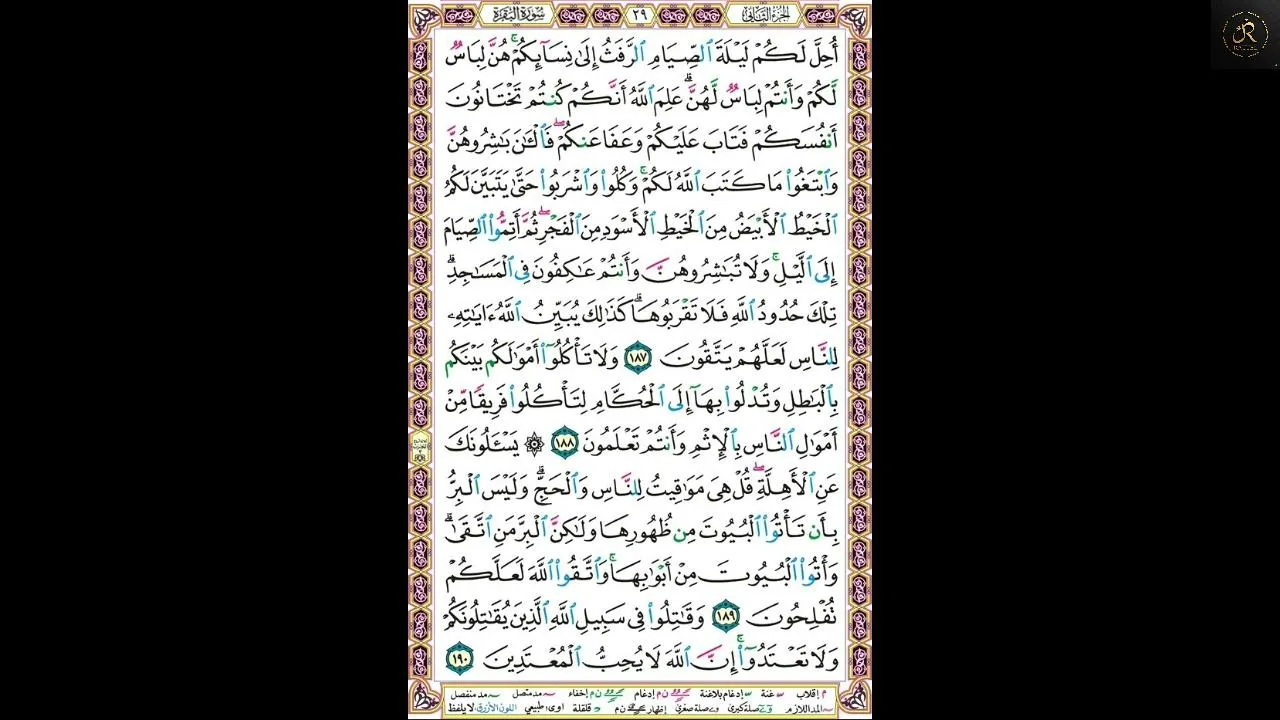 الجزء الثاني ٢٩ سورة البقرة
أُحِلَّ لَكُمْ لَيْلَةَ ٱلصِّيَامِ ٱلرَّفَثُ إِلَىٰ نِسَآئِكُمْ ۚ هُنَّ لِبَاسٌ
لَّكُمْ وَأَنتُمْ لِبَاسٌ لَّهُنَّ ۗ عَلِمَ ٱللَّهُ أَنَّكُمْ كُنتُمْ تَخْتَانُونَ
أَنفُسَكُمْ فَتَابَ عَلَيْكُمْ وَعَفَا عَنكُمْ ۖ فَٱلْـَٰٔنَ بَـٰشِرُوهُنَّ
وَٱبْتَغُوا۟ مَا كَتَبَ ٱللَّهُ لَكُمْ ۚ وَكُلُوا۟ وَٱشْرَبُوا۟ حَتَّىٰ يَتَبَيَّنَ لَكُمُ
ٱلْخَيْطُ ٱلْأَبْيَضُ مِنَ ٱلْخَيْطِ ٱلْأَسْوَدِ مِنَ ٱلْفَجْرِ ۖ ثُمَّ أَتِمُّوا۟ ٱلصِّيَامَ
إِلَى ٱلَّيْلِ ۚ وَلَا تُبَـٰشِرُوهُنَّ وَأَنتُمْ عَـٰكِفُونَ فِى ٱلْمَسَـٰجِدِ ۗ
تِلْكَ حُدُودُ ٱللَّهِ فَلَا تَقْرَبُوهَا ۗ كَذَٰلِكَ يُبَيِّنُ ٱللَّهُ ءَايَـٰتِهِۦ
لِلنَّاسِ لَعَلَّهُمْ يَتَّقُونَ ١٨٧ وَلَا تَأْكُلُوٓا۟ أَمْوَٰلَكُم بَيْنَكُم
بِٱلْبَـٰطِلِ وَتُدْلُوا۟ بِهَآ إِلَى ٱلْحُكَّامِ لِتَأْكُلُوا۟ فَرِيقًا مِّنْ
أَمْوَٰلِ ٱلنَّاسِ بِٱلْإِثْمِ وَأَنتُمْ تَعْلَمُونَ ١٨٨ ۞ يَسْـَٔلُونَكَ
عَنِ ٱلْأَهِلَّةِ ۖ قُلْ هِىَ مَوَٰقِيتُ لِلنَّاسِ وَٱلْحَجِّ ۗ وَلَيْسَ ٱلْبِرُّ
بِأَن تَأْتُوا۟ ٱلْبُيُوتَ مِن ظُهُورِهَا وَلَـٰكِنَّ ٱلْبِرَّ مَنِ ٱتَّقَىٰ ۗ
وَأْتُوا۟ ٱلْبُيُوتَ مِنْ أَبْوَٰبِهَا ۚ وَٱتَّقُوا۟ ٱللَّهَ لَعَلَّكُمْ
تُفْلِحُونَ ١٨٩ وَقَـٰتِلُوا۟ فِى سَبِيلِ ٱللَّهِ ٱلَّذِينَ يُقَـٰتِلُونَكُمْ
وَلَا تَعْتَدُوٓا۟ ۚ إِنَّ ٱللَّهَ لَا يُحِبُّ ٱلْمُعْتَدِينَ ١٩٠
م إقلاب غنة إدغام بلاغنة ن م إدغام ن م إخفاء مد متصل مد منفصل
المد اللازم صلة كبرى صلة صغرى إظهار ن م قلقلة اوى طبيعي اللون الأزرق لا يلفظ